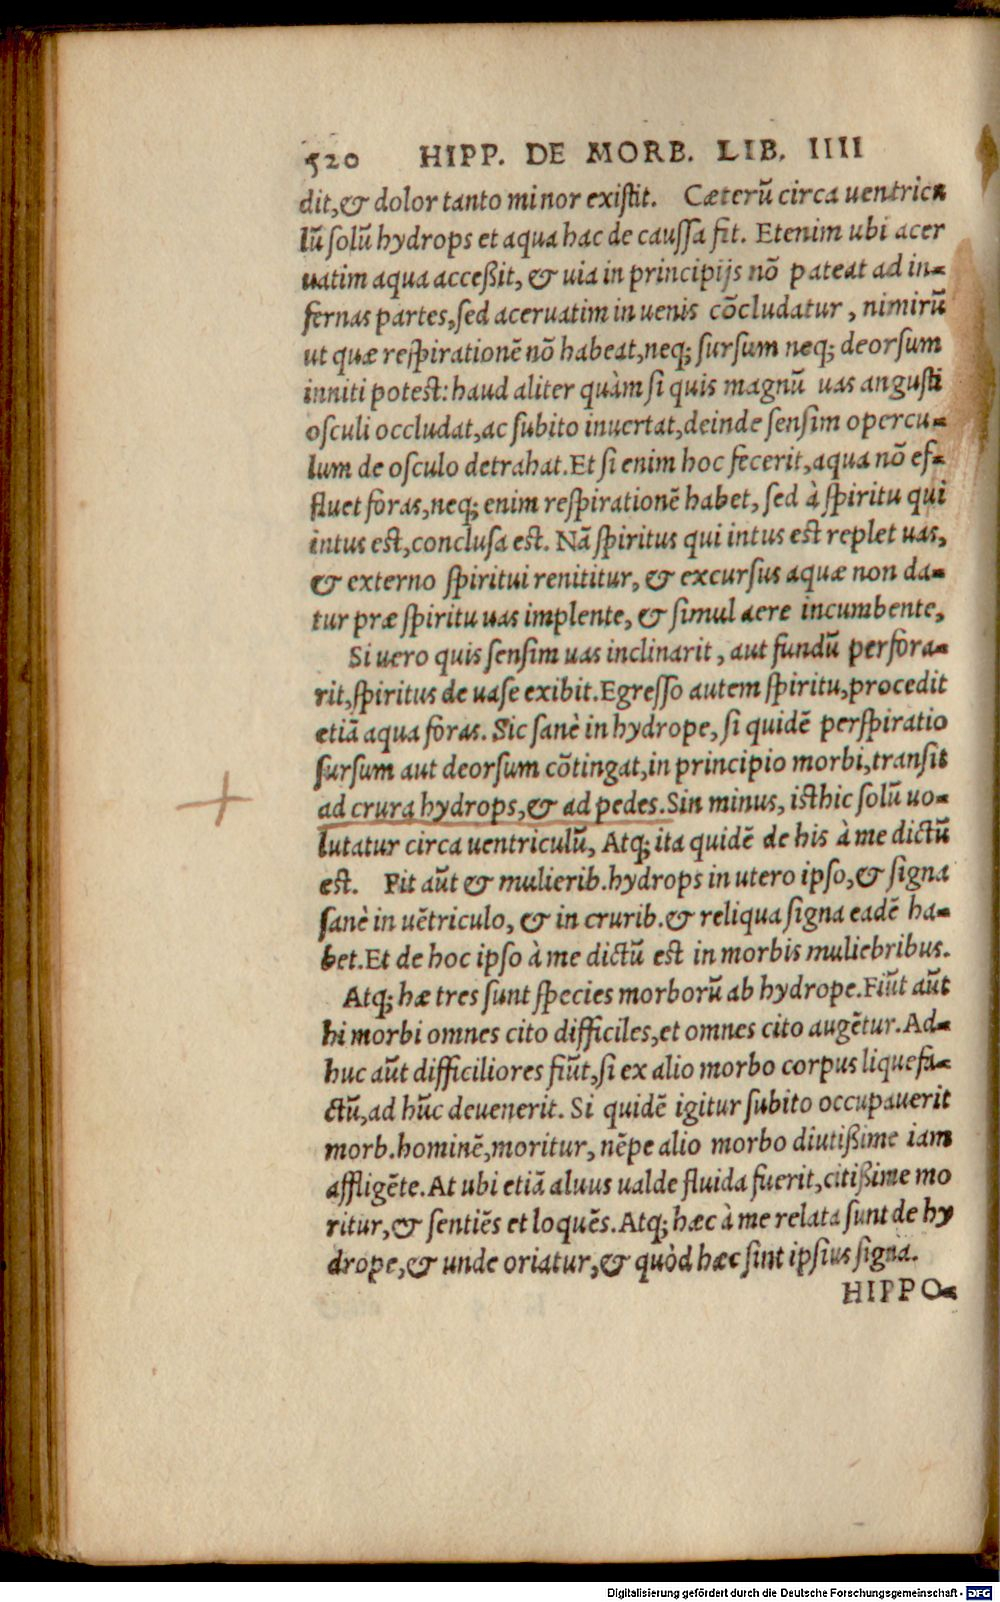 520 HIPP. DE MORB. LIB. IIII
dit,& dolor tanto minor existit. Cæterũ circa uentricu
lũ solũ hydrops et aqua hac de caussa fit. Etenim ubi acer
uatim aqua acceßit, & uia in principijs nõ pateat ad in-
fernas partes,sed aceruatim in uenis cõcludatur, nimirũ
ut quæ respirationẽ nõ habeat,neq; sursum neq; deorsum
inniti potest: haud aliter quàm si quis magnũ uas angusti
osculi occludat,ac subito inuertat,deinde sensim opercu-
lum de osculo detrahat.Et si enim hoc fecerit,aqua nõ ef-
fluet foras,neq; enim respirationẽ habet, sed à spiritu qui
intus est,conclusa est. Nã spiritus qui intus est replet uas,
& externo spiritui renititur, & excursus aquæ non da-
tur præ spiritu uas implente, & simul aere incumbente,
Si uero quis sensim uas inclinarit, aut fundũ perfora-
rit,spiritus de uase exibit.Egresso autem spiritu,procedit
etiã aqua foras. Sic sanè in hydrope, si quidẽ perspiratio
sursum aut deorsum cõtingat,in principio morbi,transit
ad crura hydrops,& ad pedes.Sin minus, isthic solũ uo-
lutatur circa uentriculũ, Atq; ita quidẽ de his à me dictũ
est. Fit aũt & mulierib.hydrops in utero ipso,& signa
sanè in uẽtriculo, & in crurib.& reliqua signa eadẽ ha-
bet.Et de hoc ipso à me dictũ est in morbis muliebribus.
Atq; hæ tres sunt species morborũ ab hydrope.Fiũt aũt
hi morbi omnes cito difficiles,et omnes cito augẽtur.Ad-
huc aũt difficiliores fiũt,si ex alio morbo corpus liquefa-
ctũ,ad hũc deuenerit. Si quidẽ igitur subito occupauerit
morb.hominẽ,moritur, nẽpe alio morbo diutißime iam
affligẽte.At ubi etiã aluus ualde fluida fuerit,citißime mo
ritur,& sentiẽs et loquẽs.Atq; hæc à me relata sunt de hy
drope,& unde oriatur,& quòd hæc sint ipsius signa.
HIPPO-
Digitalisierung gefördert durch die Deutsche Forschungsgemeinschaft - DFG